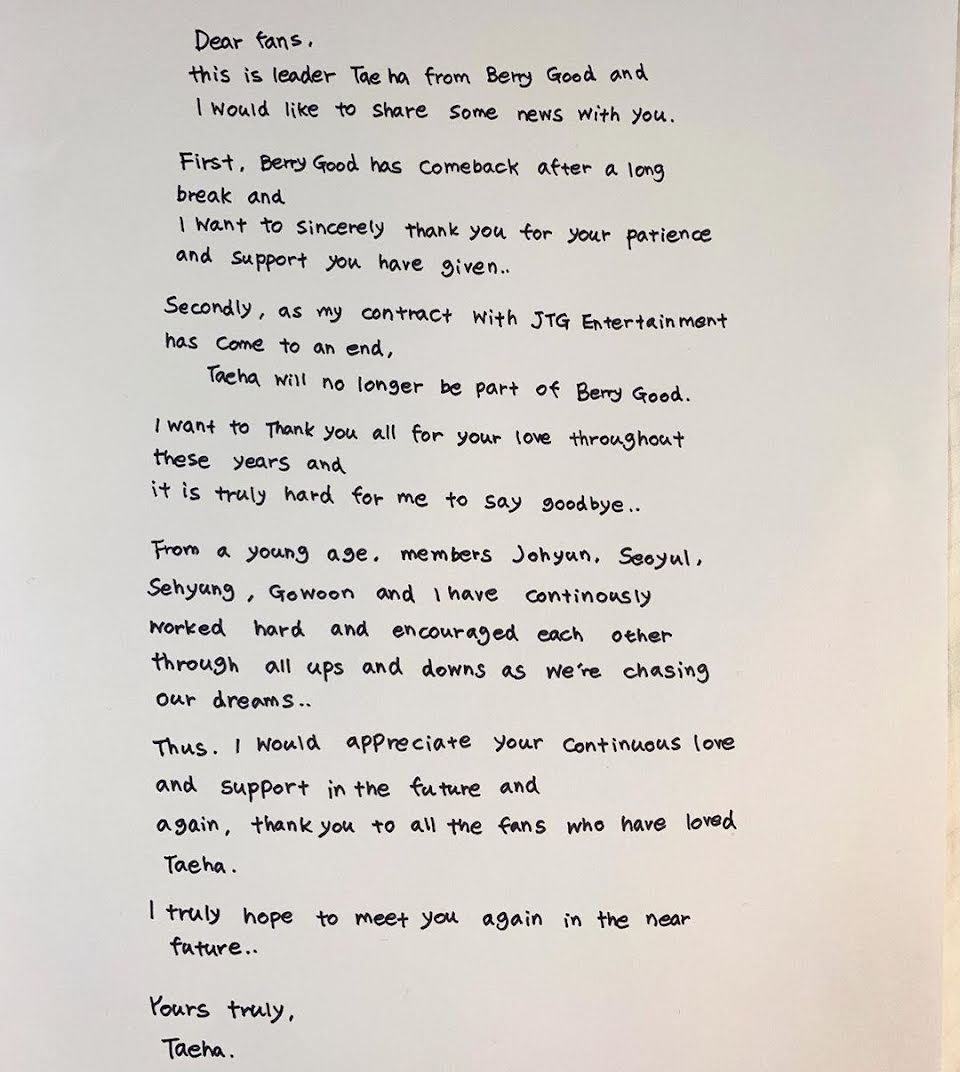 Dear fans,
this is leader Taeha from Berry Good and
I would like to share some news with you.
First, Berry Good has comeback after a long
break and
I want to sincerely thank you for your patience
and support you have given..
Secondly, as my contract with JTG Entertainment
has come to an end,
Taeha will no longer be part of Berry Good.
I want to Thank you all for your love throughout
these years and
it is truly hard for me to say goodbye..
From a young age, members Johyun, Seoyul,
Sehyung, Gowoon and I have continously
worked hard and encouraged each other
through all ups and downs as we're chasing
our dreams..
Thus. I would appreciate your continuous love
and support in the future and
again, thank you to all the fans who have loved
Taeha.
I truly hope to meet you again in the near
future..
Yours truly,
Taeha.